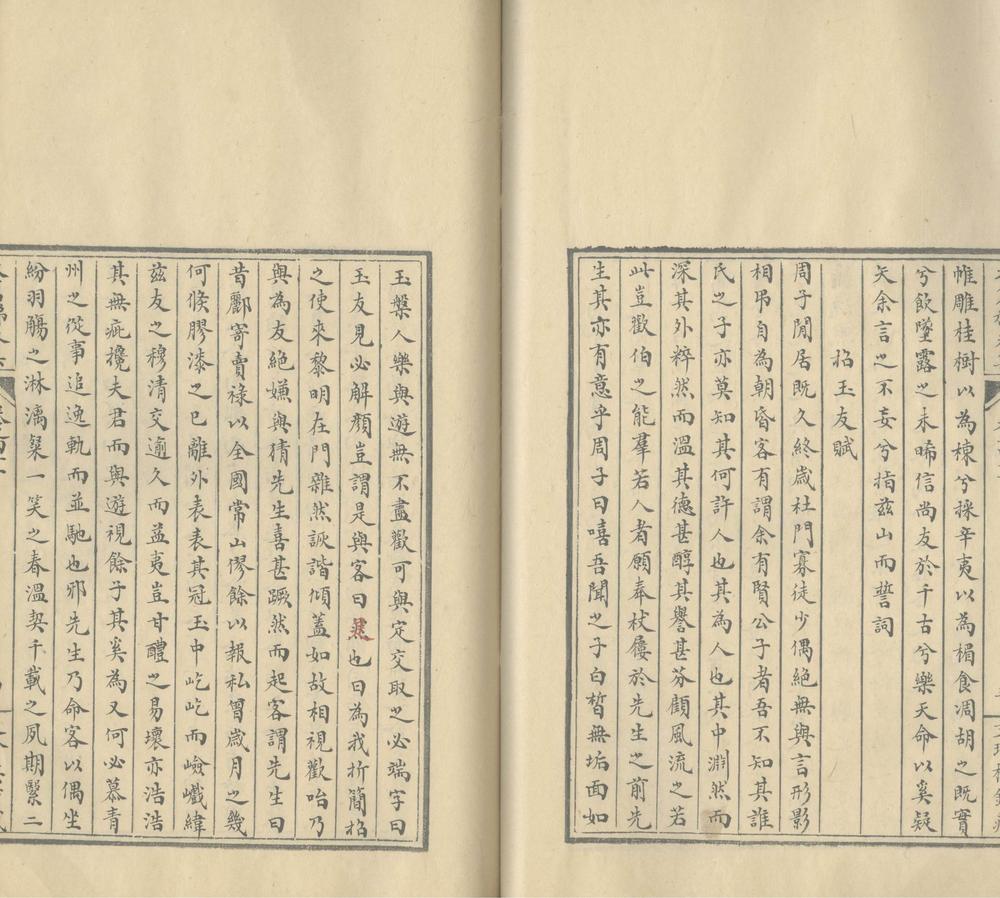 帷雕桂樹以為棟兮採辛夷以為楣食凋胡之既實
兮飲墜露之未晞信尚友於千古兮樂天命以奚疑
矢余言之不妄兮指茲山而誓詞
招玉友賦
周子閒居既久終歲杜門寡徒少偶絕無與言形影
相弔自為朝昏客有謂余有賢公子者吾不知其誰
氏之子亦莫知其何許人也其為人也其中淵然而
深其外粹然而溫其德甚醇其譽甚芬顧風流之若
此豈歡伯之能羣若人者願奉杖屨於先生之前先
生其亦有意乎周子曰嘻吾聞之子白皙無垢面如
玉槃人樂與遊無不盡歡可與定交取之必端字曰
玉友見必解顏豈謂是與客曰然也曰為我折簡招
之使來黎明在門雜然詼諧傾蓋如故相視歡咍乃
與為友絕嫌與猜先生喜甚蹶然而起客謂先生曰
昔酈寄賣祿以全國常山僇餘以報私曾歲月之幾
何倏膠漆之已離外表表其冠玉中屹屹而嶮巇緯
茲友之穆清交逾久而益夷豈甘醴之易壞亦浩浩
其無疵攙夫君而與遊視餘子其奚為又何必慕青
州之從事追逸軌而並馳也邪先生乃命客以偶坐
紛羽觴之淋漓粲一笑之春溫契千載之夙期繄二